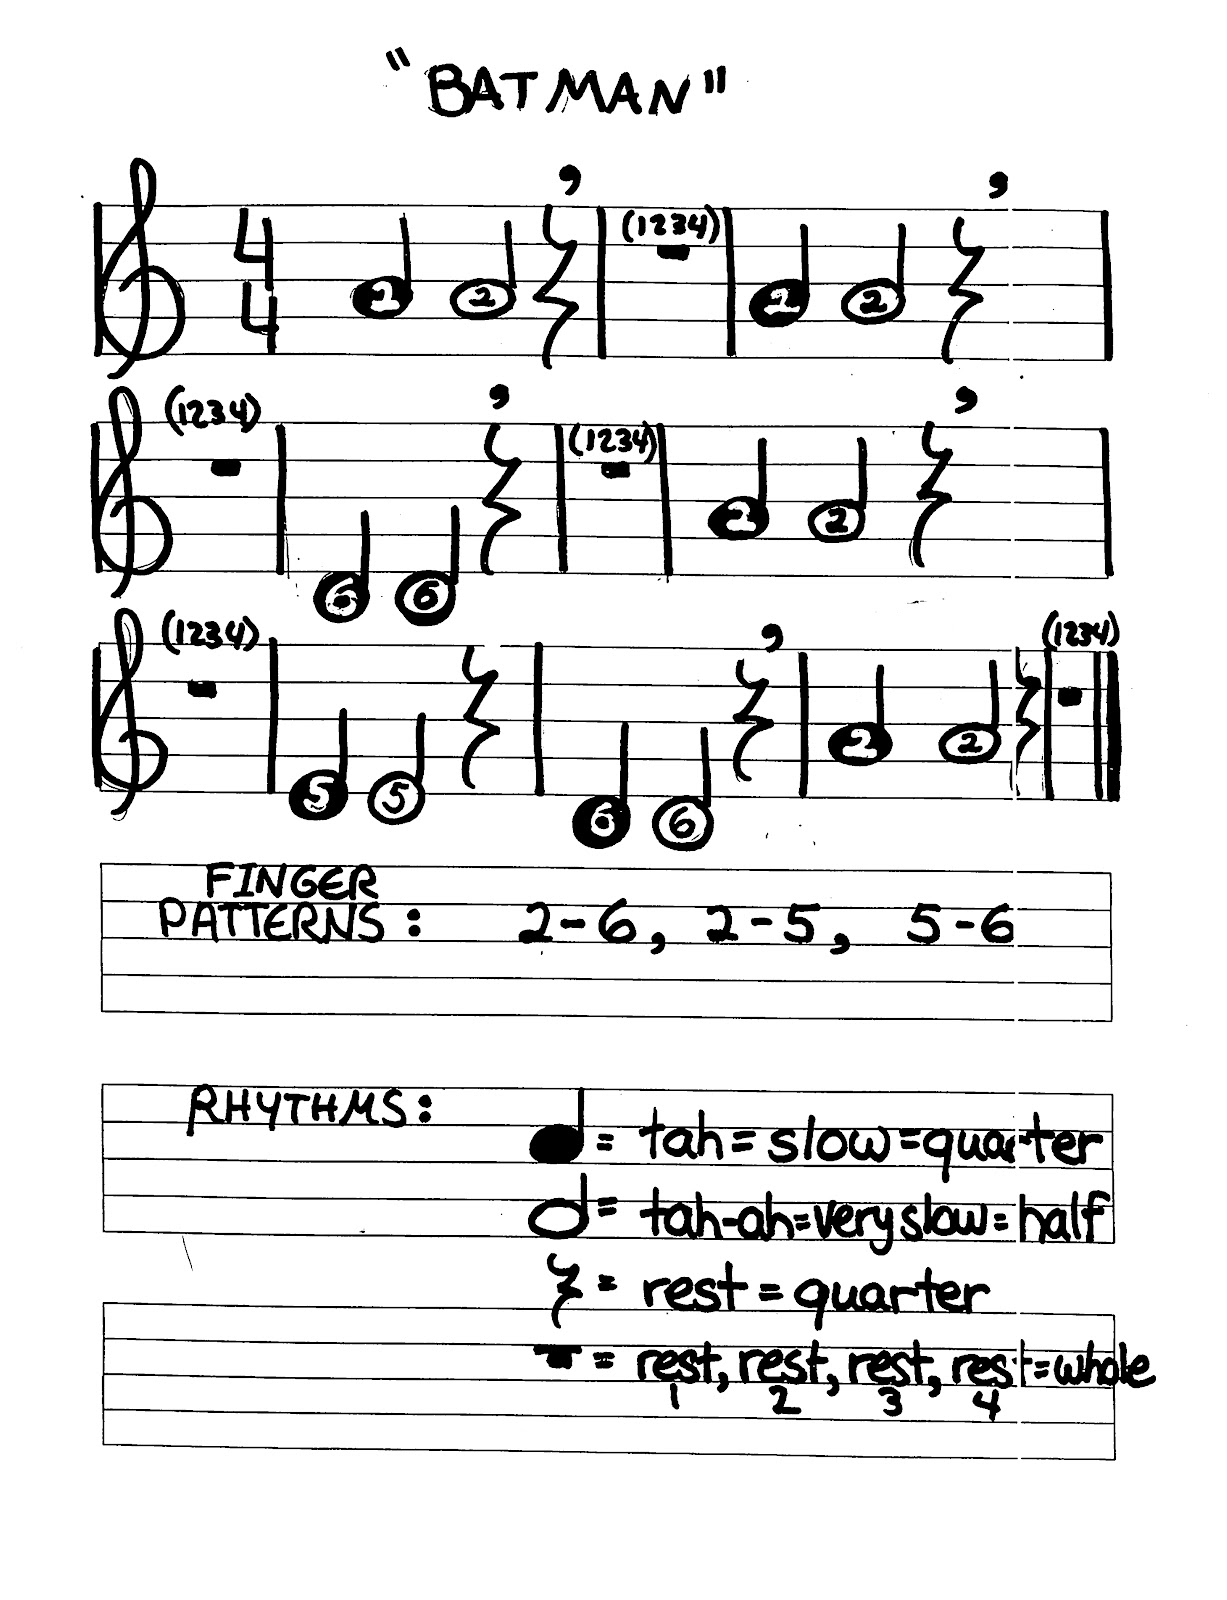 "BATMAN"
4
4
2 2 , (1234) 2 2 ,
(1234) 6 6 , (1234) 2 2 ,
(1234) 5 5 6 6 , 2 2 (1234)
FINGER
PATTERNS: 2-6, 2-5, 5-6
RHYTHMS:
= tah = slow = quarter
= tah-ah = very slow = half
= rest = quarter
= rest, rest, rest, rest = whole
1 2 3 4